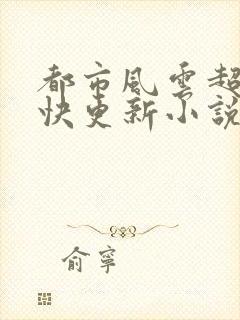 都市風雲超
快更新小說
俞寧